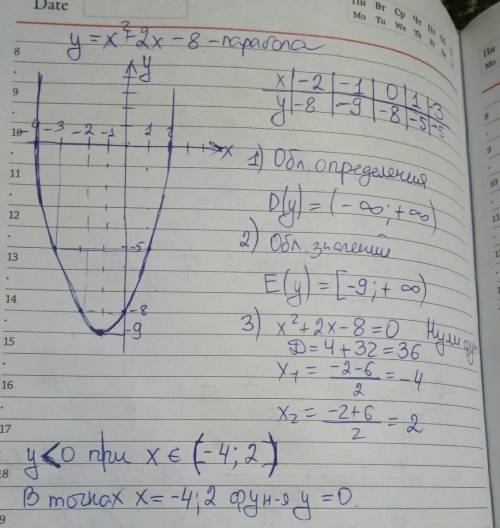 Date
Пн Вт Ср Чт
Mo Tu We Th
y = x² + 2x - 8 - парабола
x | -2 | -1 | 0 | 1 | -3
y | -8 | -9 | -8 | -5 | -5
y
-4 -3 -2 -1 1 2 x
-5
-8
-9
1) Обл. определения
D(y) = (-∞; +∞)
2) Обл. значений
E(y) = [-9; +∞)
3) x² + 2x - 8 = 0 Нули
D = 4 + 32 = 36
x₁ = (-2-6)/2 = -4
x₂ = (-2+6)/2 = 2
y < 0 при x ∈ (-4; 2)
В точках x = -4; 2 фун-я y = 0.
8
9
10
11
12
13
14
15
16
17
18
Пн
Mo
8
9
10
11
12
13